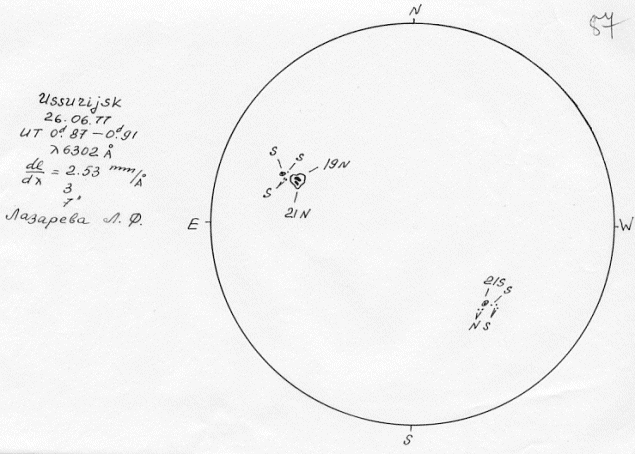 87
N
Ussurijsk
26.06.77
UT 0.ᵈ87 – 0.ᵈ91
λ 6302 Å
dl/dλ = 2.53 mm/Å
3
7"
Лазарева Л. Ф.
S S 19N
S
21N
E
W
21S
S
N S
S